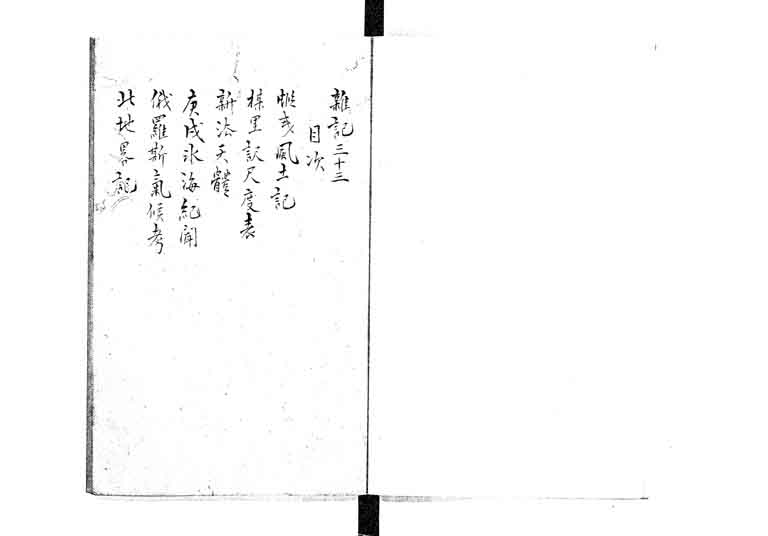 雜記三十三
目次
帳夷風土記
採里訳尺度表
新法天體
庚戌氷海紀聞
俄羅斯氣候考
北地畧記